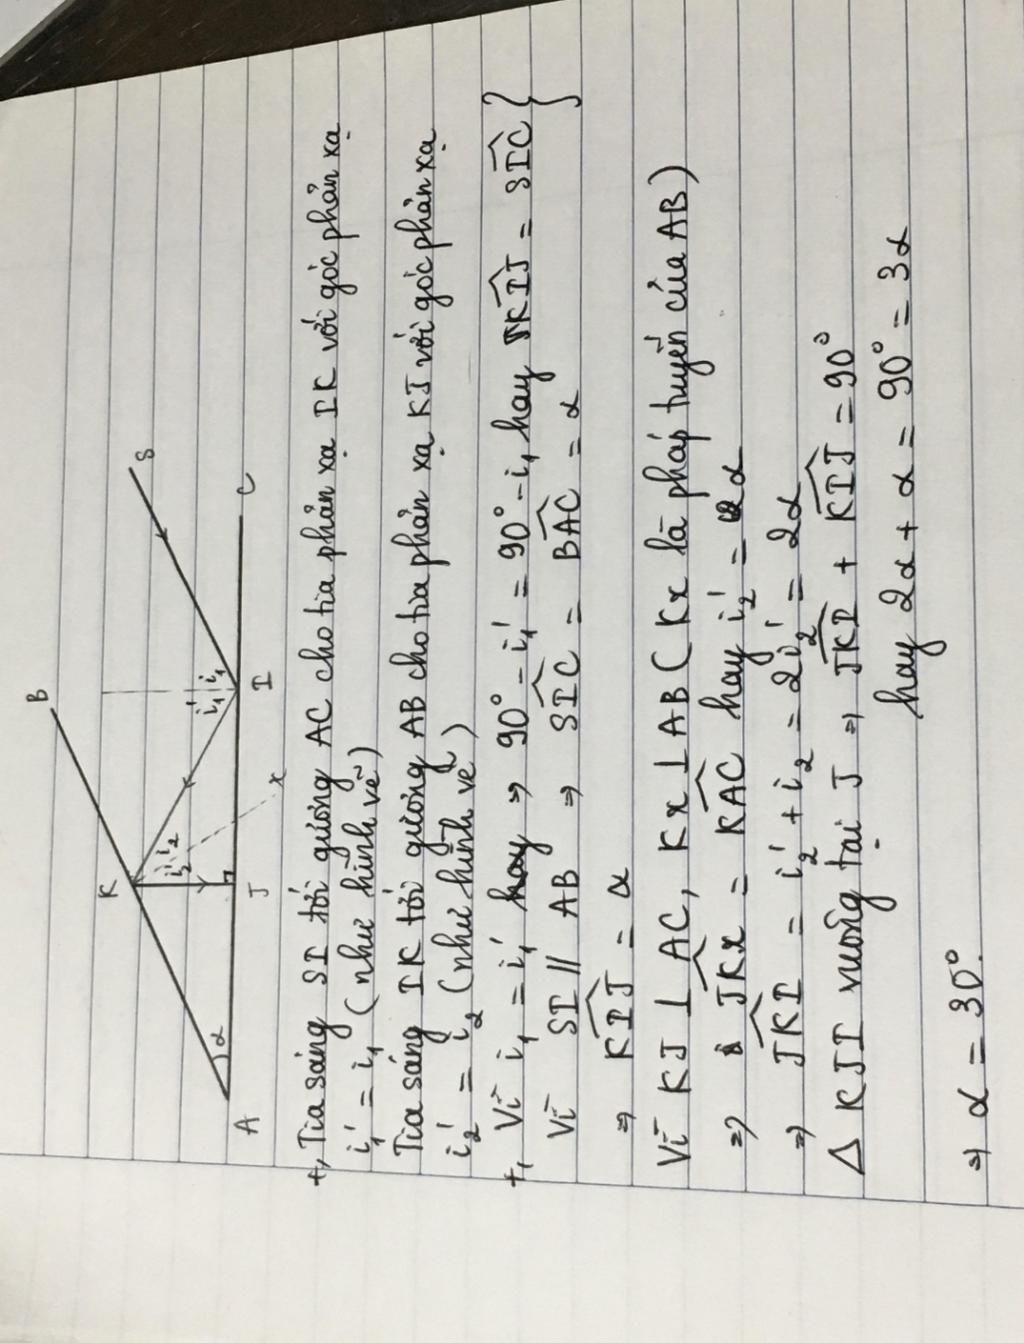 B
S
K
i₂' i₂
i₁' i₁
x
C
A
α
J
I
+, Tia sáng SI tới gương AC cho tia phản xạ IK với góc phản xạ
i₁' = i₁ (như hình vẽ)
Tia sáng IK tới gương AB cho tia phản xạ KJ với góc phản xạ
i₂' = i₂ (như hình vẽ)
+, Vì i₁ = i₁' hay ⇒ 90° - i₁' = 90° - i₁ hay \widehat{KIJ} = \widehat{SIC} }
Vì SI // AB ⇒ \widehat{SIC} = \widehat{BAC} = α
⇒ \widehat{KIJ} = α
Vì KJ ⊥ AC, Kx ⊥ AB (Kx là pháp tuyến của AB)
⇒ \widehat{JKx} = \widehat{KAC} hay i₂' = α
⇒ \widehat{JKI} = i₂' + i₂ = 2i₂' = 2α
Δ KJI vuông tại J ⇒ \widehat{JKI} + \widehat{KIJ} = 90°
hay 2α + α = 90° = 3α
⇒ α = 30°.